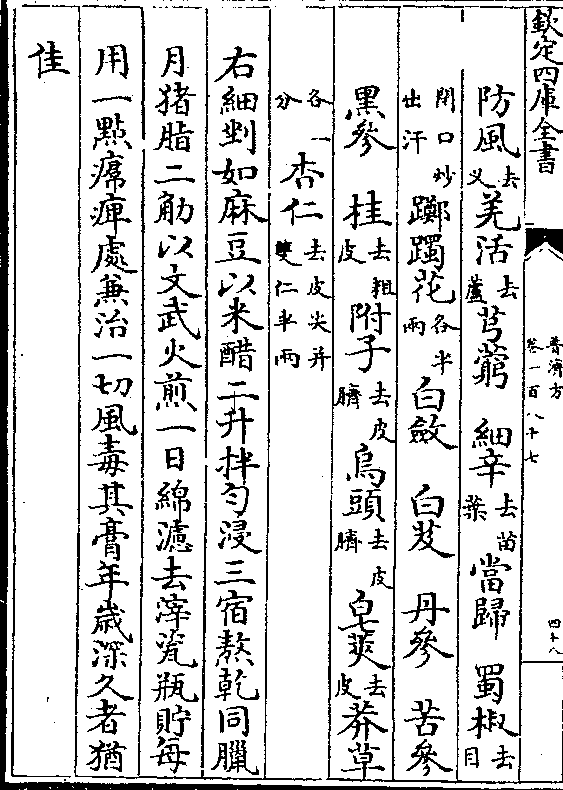 欽定四庫全書
普濟方
卷一百八十七
四十八
防風去叉羌活去蘆芎藭 細辛去苗葉當歸 蜀椒去目
閉口炒出汗躑躅花各半兩白斂 白芨 丹參 苦參
黑參 桂去粗皮附子去皮臍烏頭去皮臍皂莢去皮莽草
各一分杏仁去皮尖并雙仁半兩
右細剉如麻豆以米醋二升拌勻浸三宿熬乾同臘
月猪脂二觔以文武火煎一日綿濾去滓瓷瓶貯每
用一點㾽痺處兼治一切風毒其膏年歲深久者猶
佳